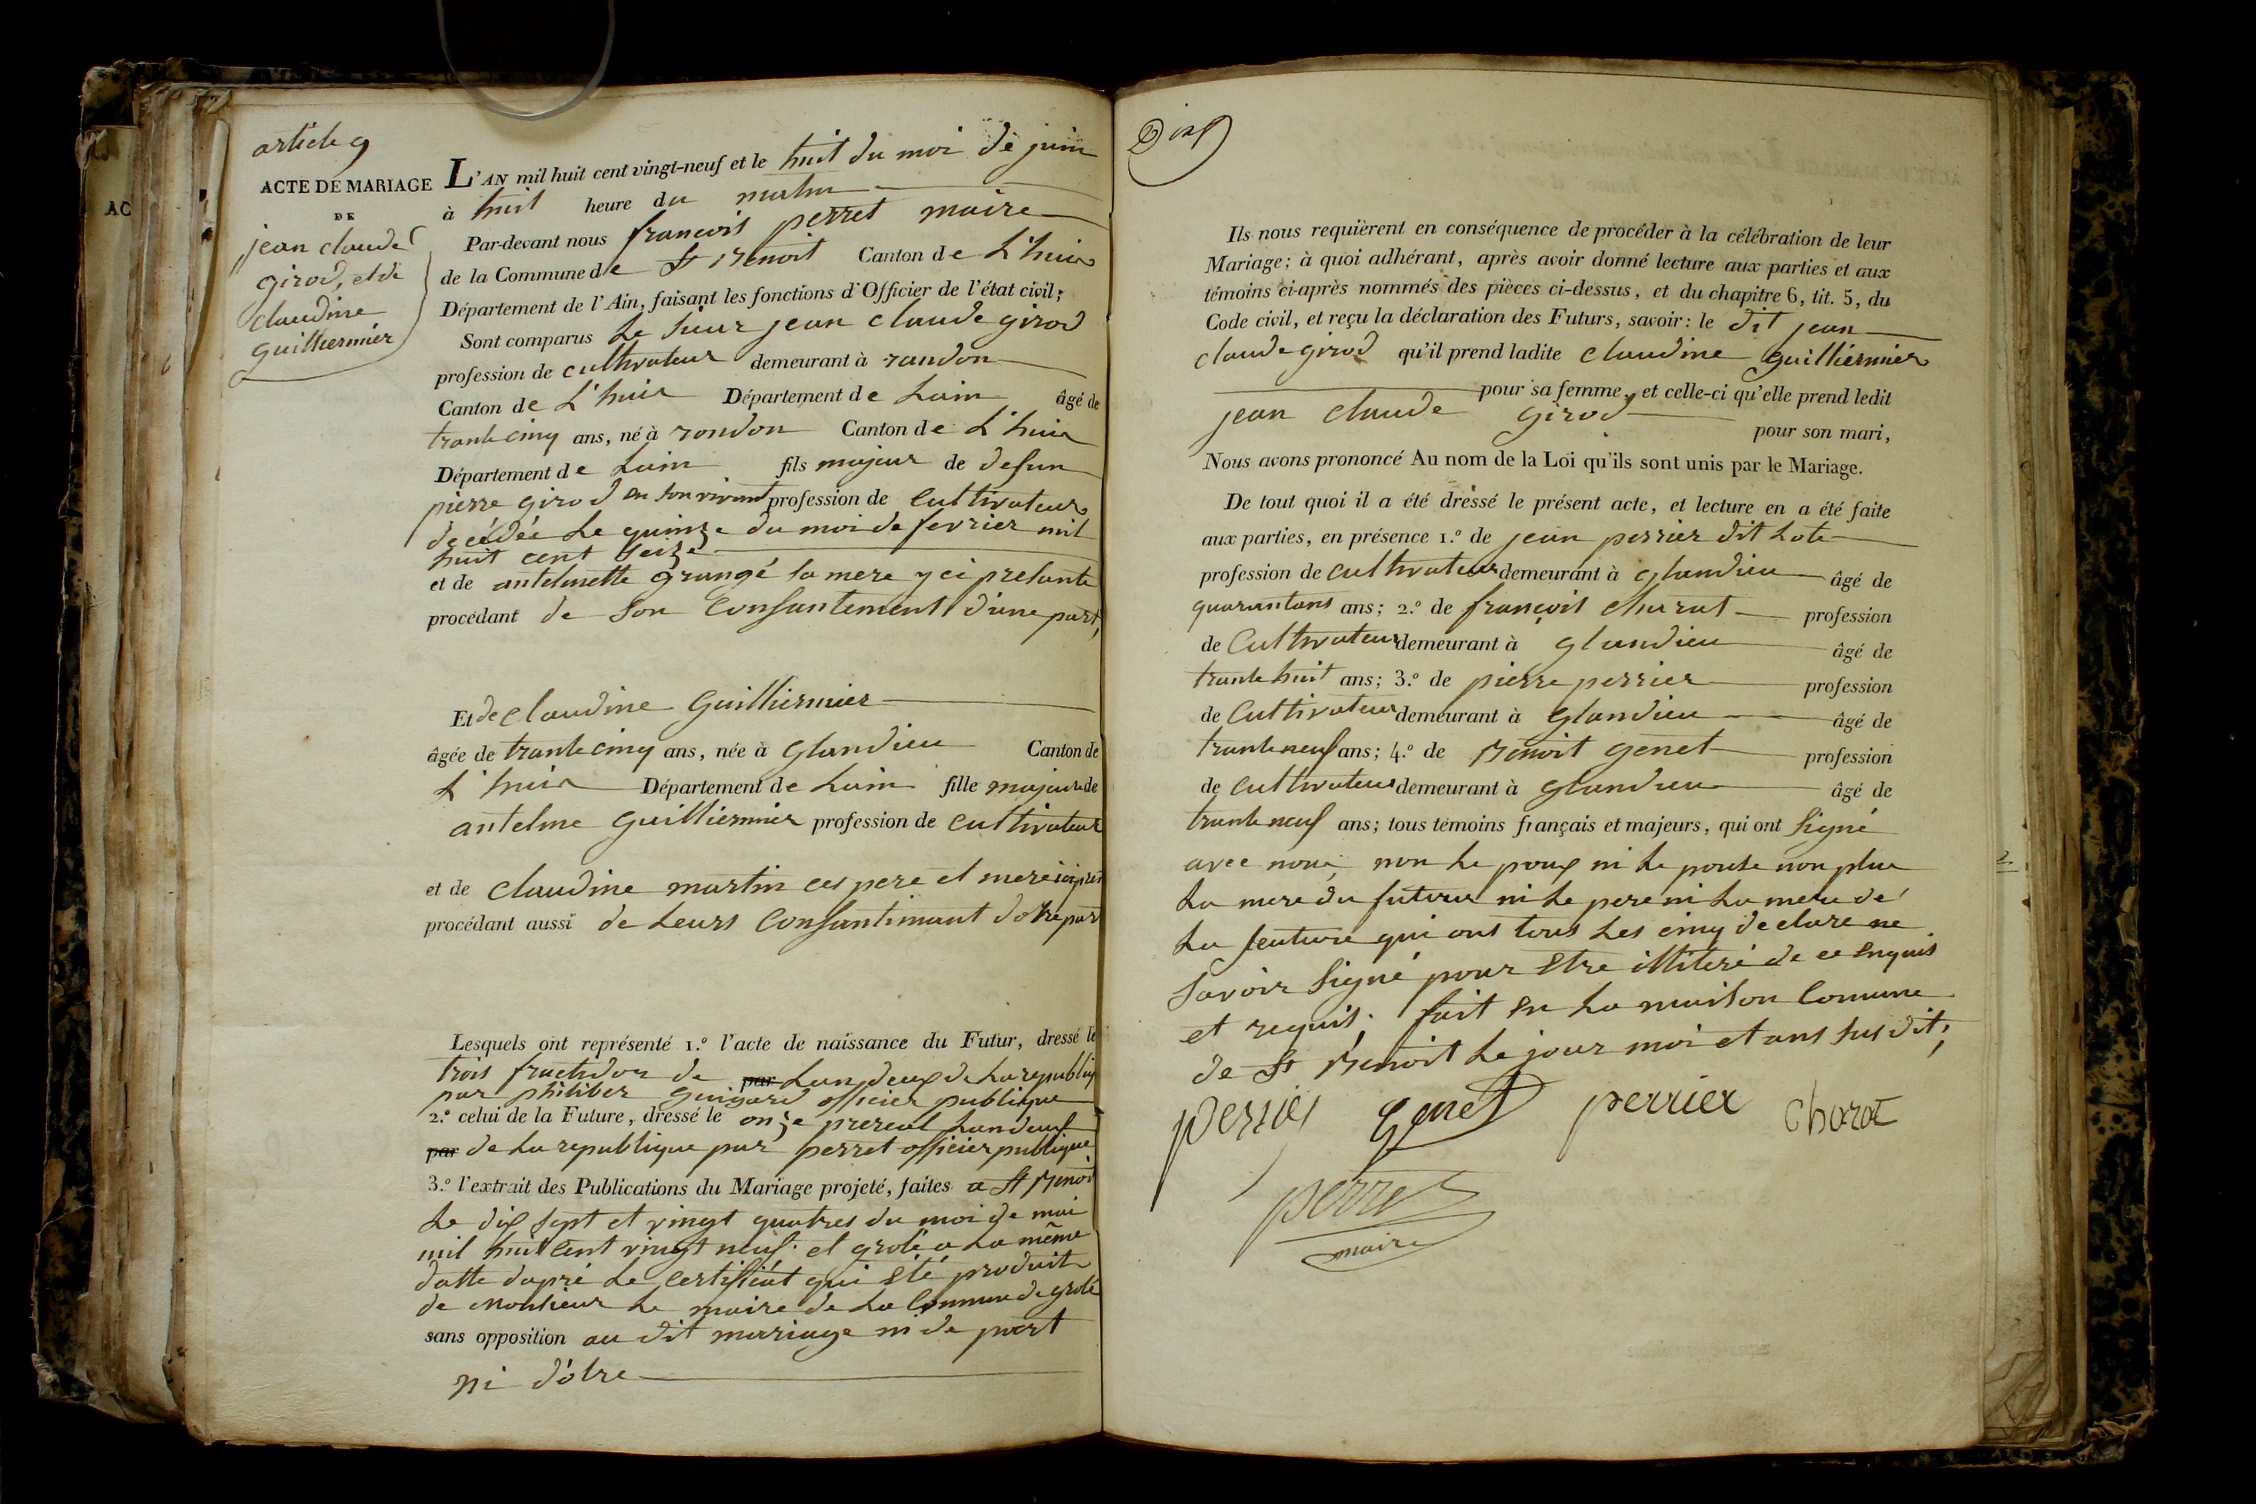 article 9
ACTE DE MARIAGE
DE
jean claude
girod, et de
claudine
guilliermier
AC
L'AN mil huit cent vingt-neuf et le huit du moi de juin
à huit heure du matin
Par-devant nous françois perret maire
de la Commune de St Benoit Canton de L'huis
Département de l'Ain, faisant les fonctions d'Officier de l'état civil;
Sont comparus Le sieur jean claude girod
profession de cultivateur demeurant à randon
Canton de L'huis Département de Lain âgé de
trante cinq ans, né à rondon Canton de L'huis
Département de Lain fils majeur de defun
pierre girod en son vivant profession de cultivateur
decédée Le quinze du moi de fevrier mil
huit cent seize
et de antelmette grangé sa mere y ci presante
procédant de son consantement d'une part,
Et de claudine guilliermier
âgée de trante cinq ans, née à glandieu Canton de
L'huis Département de Lain fille majeure de
antelme guilliermier profession de cultivateur
et de claudine martin ces pere et mere ici pres
procédant aussi de Leurs consantimant d'otre part
Lesquels ont représenté 1.º l'acte de naissance du Futur, dressé le
trois fructidor de par Lan deux de La republiq
par philiber guigard officier publique
2.º celui de la Future, dressé le onze prereal Landeux
par de La republique par perret officier publique
3.º l'extrait des Publications du Mariage projeté, faites a St Benoit
Le dix sept et vingt quatres du moi de mai
mil huit cent vingt neuf. et grolé a La même
datte dapré Le certificat qui eté produit
de monsieur Le maire de La Commune de grolé
sans opposition au dit mariage ni de part
ni d'otre
Dix
Ils nous requièrent en conséquence de procéder à la célébration de leur
Mariage; à quoi adhérant, après avoir donné lecture aux parties et aux
témoins ci-après nommés des pièces ci-dessus, et du chapitre 6, tit. 5, du
Code civil, et reçu la déclaration des Futurs, savoir: le dit jean
claude girod qu'il prend ladite claudine guilliermier
pour sa femme, et celle-ci qu'elle prend ledit
jean claude girod pour son mari,
Nous avons prononcé Au nom de la Loi qu'ils sont unis par le Mariage.
De tout quoi il a été dressé le présent acte, et lecture en a été faite
aux parties, en présence 1.º de jean perrier dit Lote
profession de cultivateur demeurant à glandieu âgé de
quarantans ans; 2.º de françois charrat profession
de Cultivateur demeurant à glandieu âgé de
trante huit ans; 3.º de pierre perrier profession
de Cultivateur demeurant à glandieu âgé de
trante neuf ans; 4.º de Benoit genet profession
de cultivateur demeurant à glandieu âgé de
trante neuf ans; tous témoins français et majeurs, qui ont signé
avec nous, non Le poux ni Le pouse non plus
La mere du futeur ni Le pere ni La mere de
La feuture qui ont tous Les cinq declare ne
savoir signé pour etre illiteré de ce enquis
et requis. fait en La maison Comune
de St Benoit Le jour moi et ans susdit;
perrier genet perrier charat
perret
maire
2